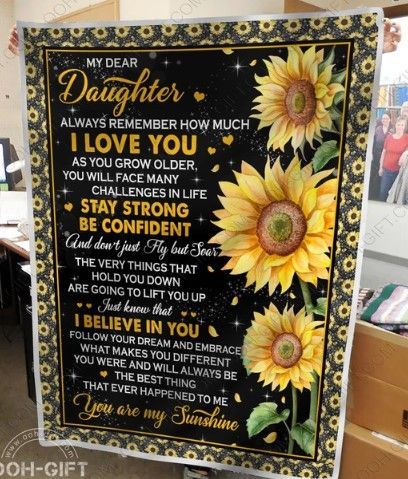 MY DEAR
Daughter
ALWAYS REMEMBER HOW MUCH
I LOVE YOU
AS YOU GROW OLDER,
YOU WILL FACE MANY
CHALLENGES IN LIFE
STAY STRONG
BE CONFIDENT
And don't just Fly but Soar
THE VERY THINGS THAT
HOLD YOU DOWN
ARE GOING TO LIFT YOU UP
Just know that
I BELIEVE IN YOU
FOLLOW YOUR DREAM AND EMBRACE
WHAT MAKES YOU DIFFERENT
YOU WERE AND WILL ALWAYS BE
THE BEST THING
THAT EVER HAPPENED TO ME
You are my Sunshine
OOH-GIFT